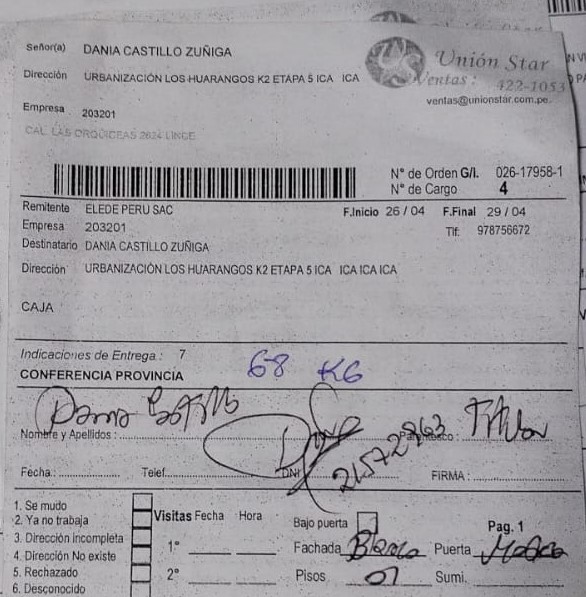 Señor(a) DANIA CASTILLO ZUÑIGA
Unión Star
Dirección URBANIZACIÓN LOS HUARANGOS K2 ETAPA 5 ICA ICA
Ventas : 422-1053
ventas@unionstar.com.pe.
Empresa 203201
CAL. LAS ORQUICEAS 2624 LINCE
N° de Orden G/I. 026-17958-1
N° de Cargo 4
Remitente ELEDE PERU SAC F.Inicio 26 / 04 F.Final 29 / 04
Empresa 203201 Tlf: 978756672
Destinatario DANIA CASTILLO ZUÑIGA
Dirección URBANIZACIÓN LOS HUARANGOS K2 ETAPA 5 ICA ICA ICA ICA
CAJA
Indicaciones de Entrega : 7
68 KG
CONFERENCIA PROVINCIA
Nombre y Apellidos : Titular
Fecha : Telef. DNI FIRMA :
1. Se mudo
2. Ya no trabaja Visitas Fecha Hora Bajo puerta Pag. 1
3. Dirección incompleta 1° Fachada Blanca Puerta
4. Dirección No existe
5. Rechazado 2° Pisos 01 Sumi.
6. Desconocido